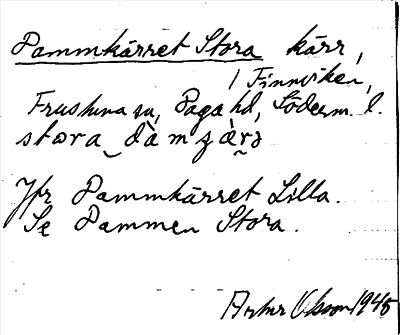 Dammkärret Stora kärr,
/ Finnviken,
Frustuna sn, Daga hd, Söderm. l.
stora dàmɟær̀ɔ
Jfr Dammkärret Lilla.
Se Dammen Stora.
Artur Olsson 1945